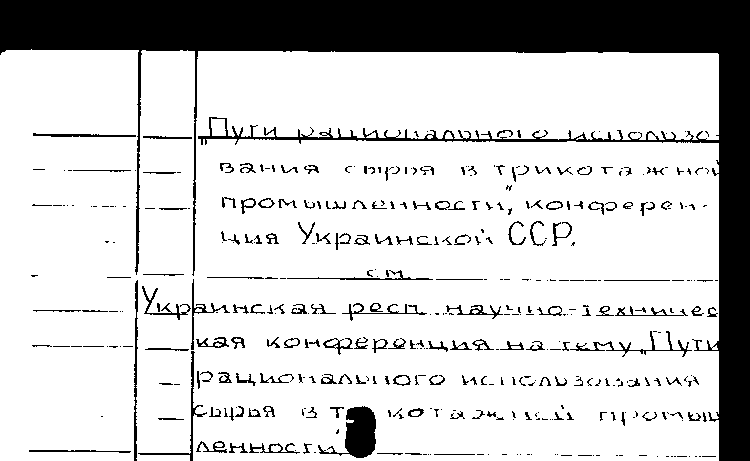 „Пути рационального использо-
вания сырья в трикотажной
промышленности", конферен-
ция Украинской ССР.
см.
Украинская респ. научно-техничес
кая конференция на тему „Пути
рационального использования
сырья в
промыш
ленности"